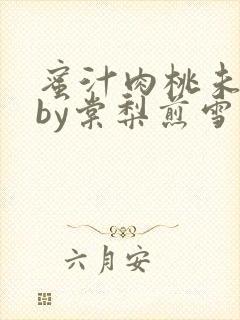 蜜汁肉桃未
by棠梨煎雪
六月安